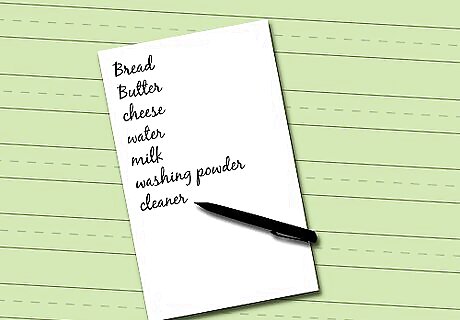 Bread
Butter
cheese
water
milk
washing powder
cleaner